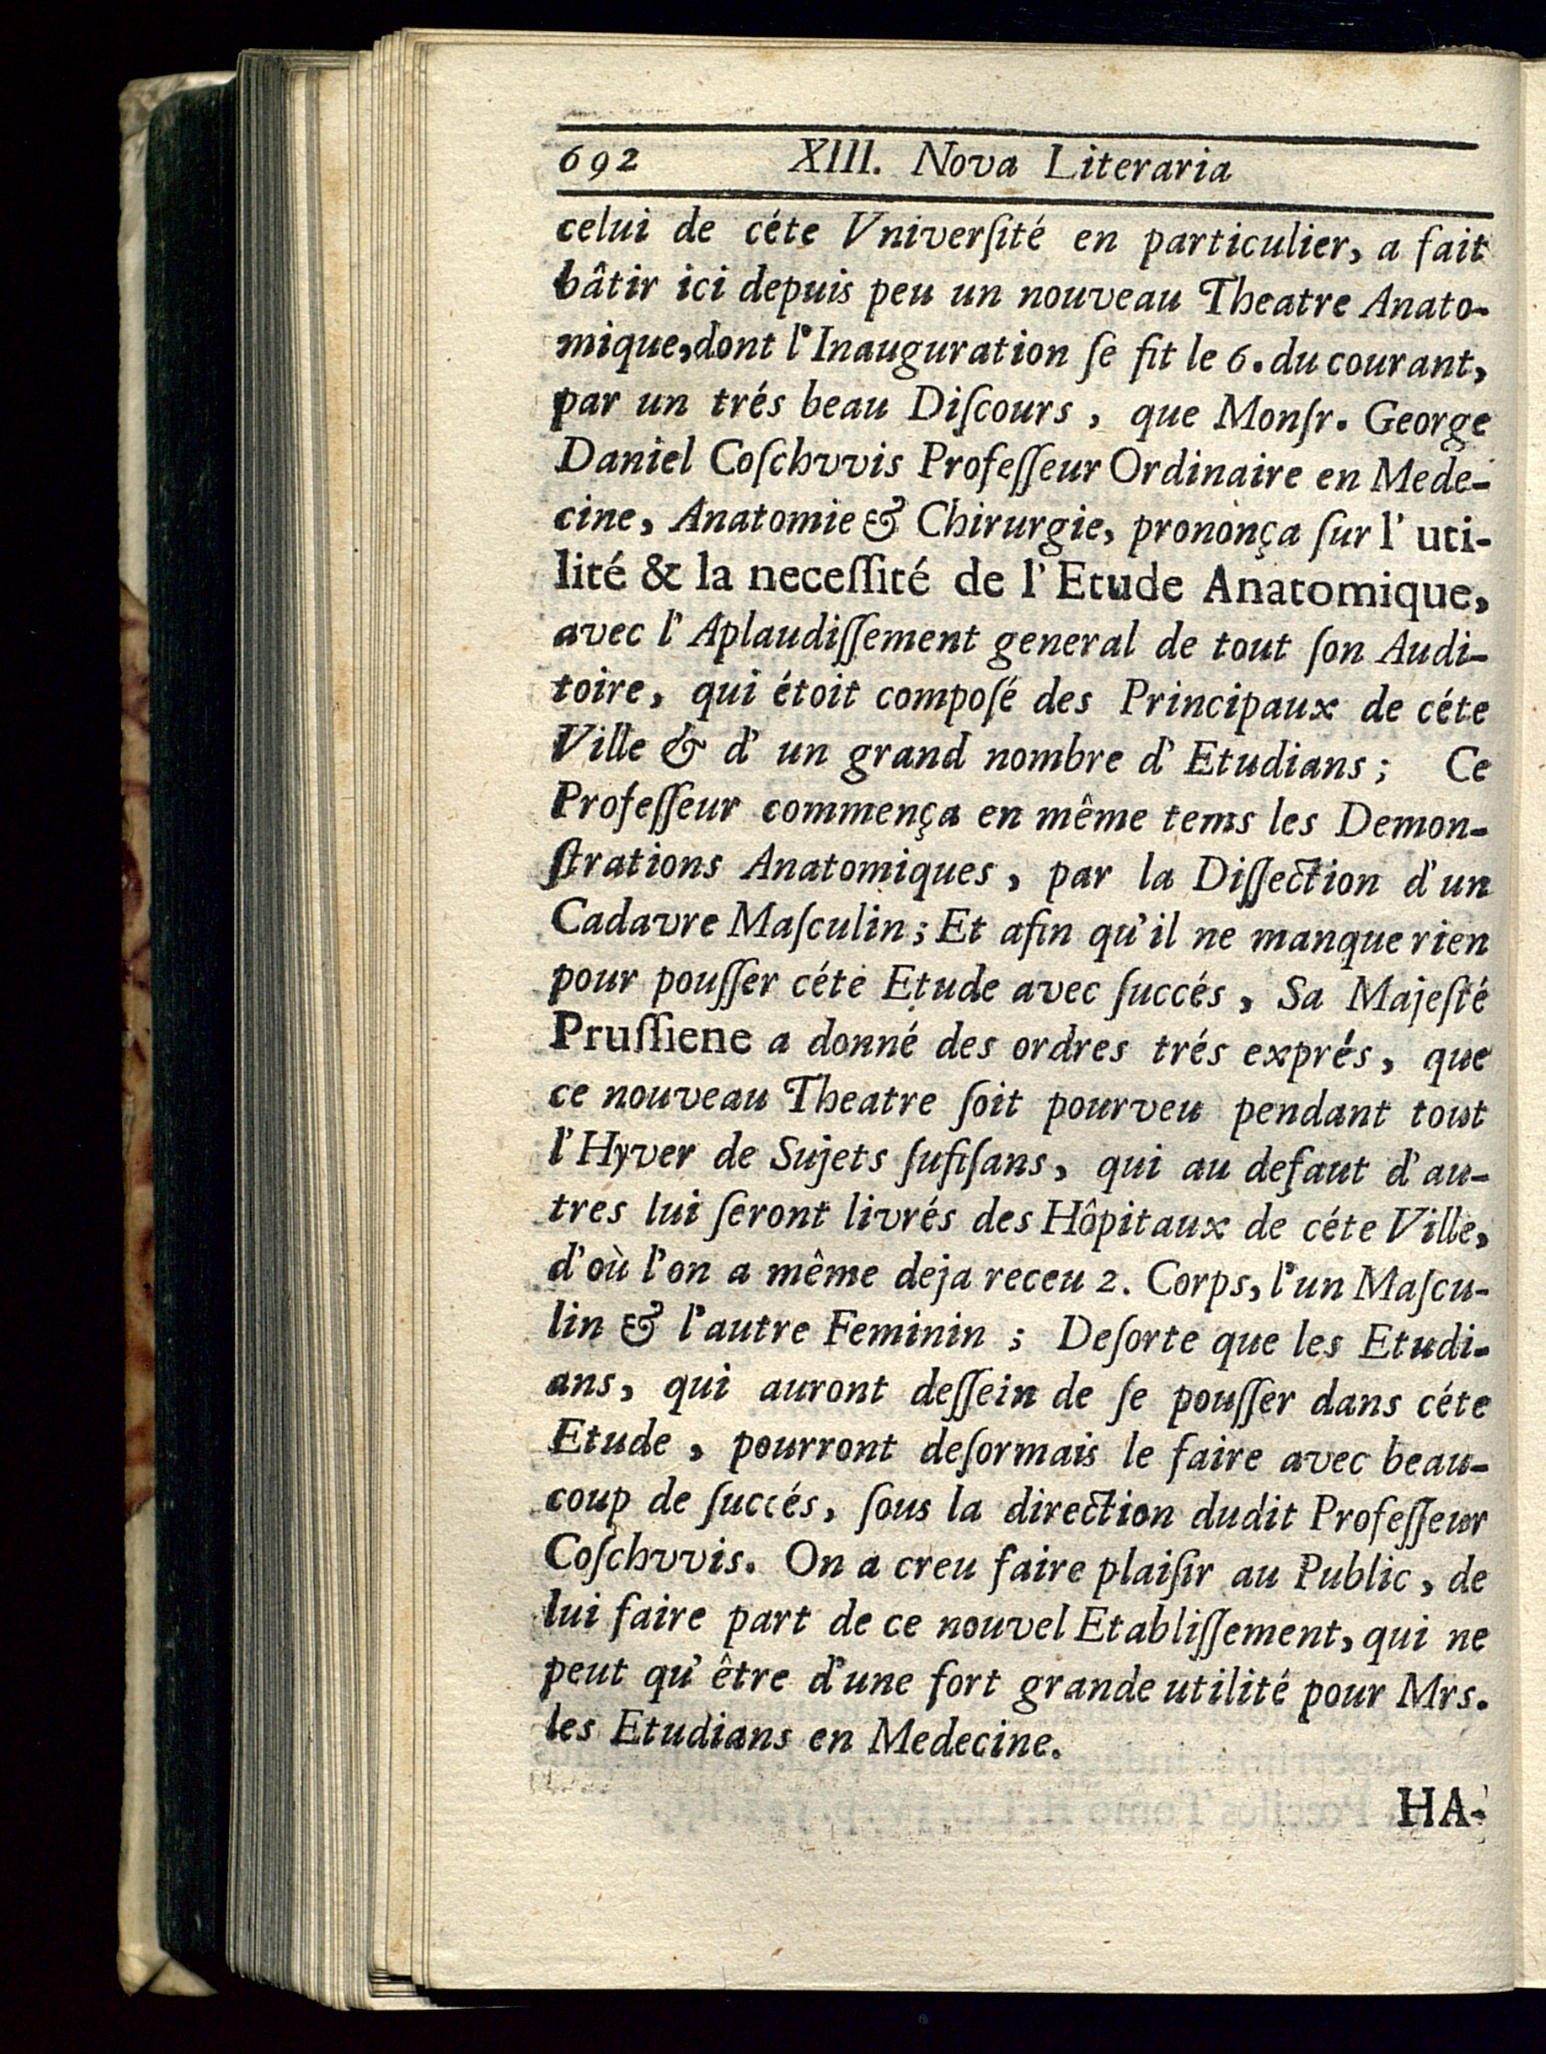 692 XIII. Nova Literaria
celui de céte Vniverſité en particulier, a fait
bâtir ici depuis peu un nouveau Theatre Anato-
mique, dont l'Inauguration ſe fit le 6. du courant,
par un trés beau Diſcours, que Monſr. George
Daniel Coſchvvis Profeſſeur Ordinaire en Mede-
cine, Anatomie & Chirurgie, prononça ſur l' uti-
lité & la neceſſité de l' Etude Anatomique,
avec l' Aplaudiſſement general de tout ſon Audi-
toire, qui étoit compoſé des Principaux de céte
Ville & d' un grand nombre d' Etudians; Ce
Profeſſeur commença en même tems les Demon-
ſtrations Anatomiques, par la Diſſection d'un
Cadavre Maſculin; Et afin qu'il ne manque rien
pour pouſſer céte Etude avec ſuccés, Sa Majeſté
Pruſſiene a donné des ordres trés exprés, que
ce nouveau Theatre ſoit pourveu pendant tout
l'Hyver de Sujets ſufiſans, qui au defaut d'au-
tres lui ſeront livrés des Hôpitaux de céte Ville,
d'où l'on a même deja receu 2. Corps, l'un Maſcu-
lin & l'autre Feminin; Deſorte que les Etudi-
ans, qui auront deſſein de ſe pouſſer dans céte
Etude, pourront deſormais le faire avec beau-
coup de ſuccés, ſous la direction dudit Profeſſeur
Coſchvvis. On a creu faire plaiſir au Public, de
lui faire part de ce nouvel Etabliſſement, qui ne
peut qu' être d'une fort grande utilité pour Mrs.
les Etudians en Medecine.
HA-